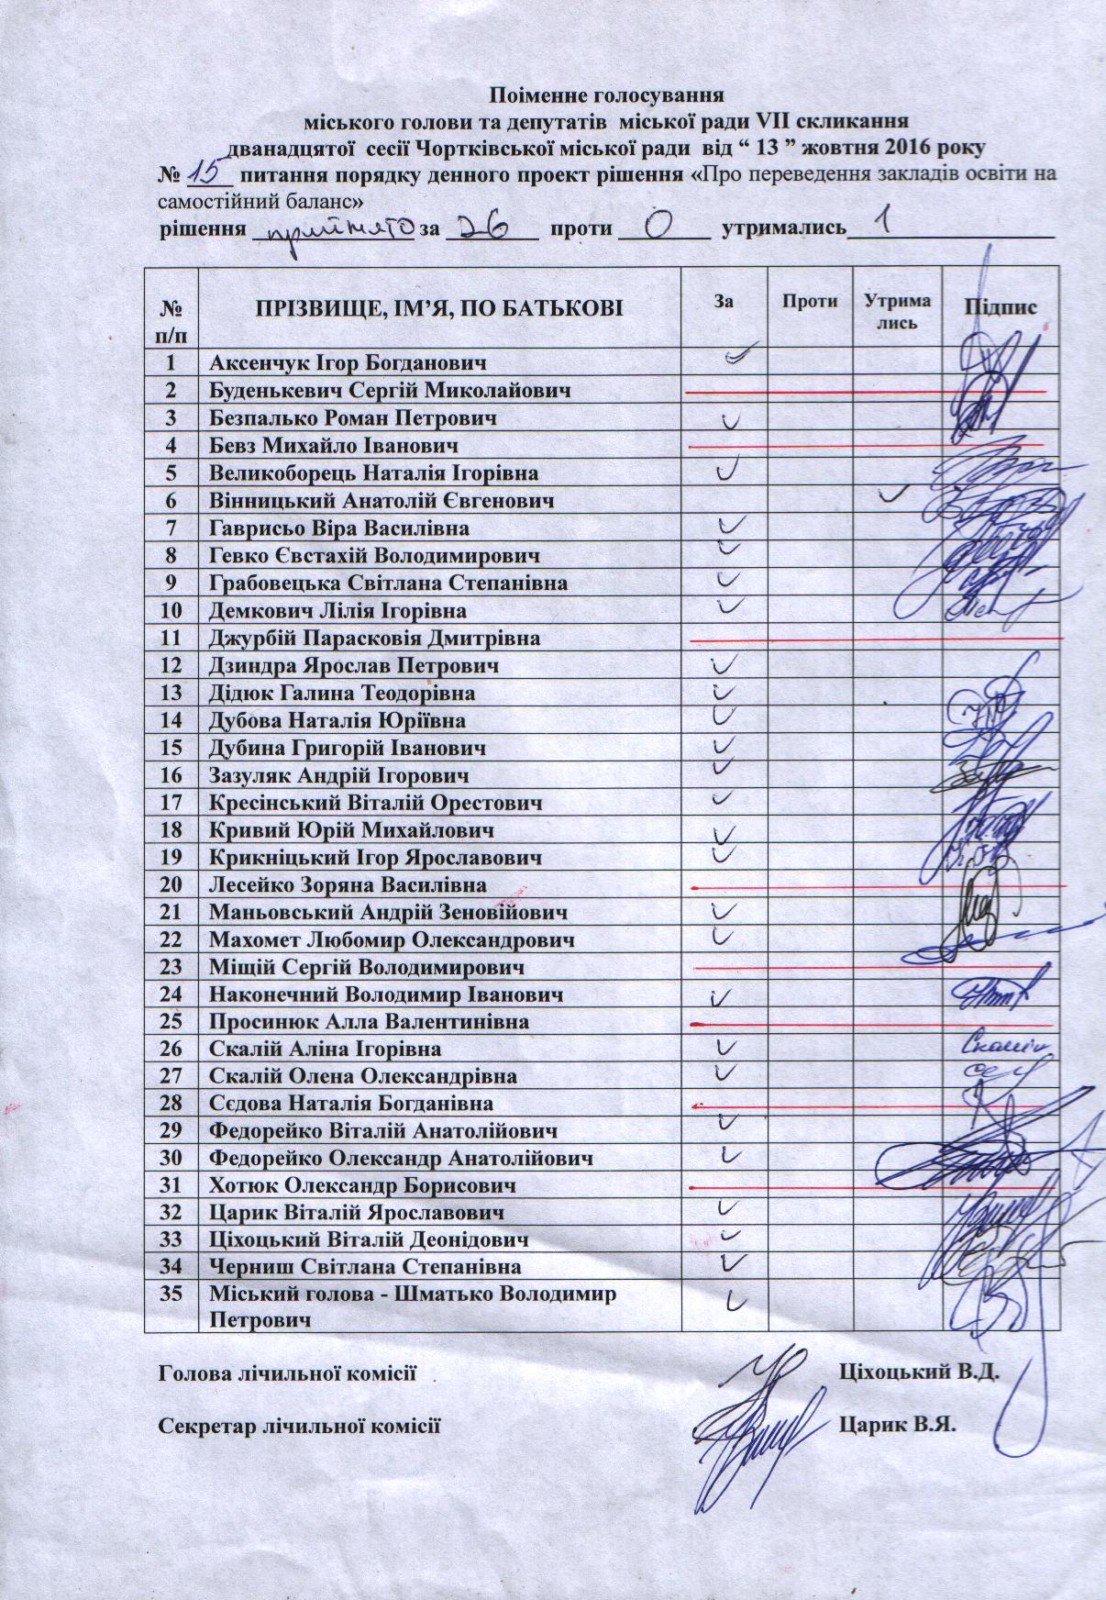 Поіменне голосування
міського голови та депутатів міської ради VII скликання
дванадцятої сесії Чортківської міської ради від “ 13 ” жовтня 2016 року
№ 15 питання порядку денного проект рішення «Про переведення закладів освіти на
самостійний баланс»
рішення прийнято за 26 проти 0 утримались 1
№ п/п ПРІЗВИЩЕ, ІМ’Я, ПО БАТЬКОВІ За Проти Утрима лись Підпис
1 Аксенчук Ігор Богданович
2 Буденькевич Сергій Миколайович
3 Безпалько Роман Петрович
4 Бевз Михайло Іванович
5 Великоборець Наталія Ігорівна
6 Вінницький Анатолій Євгенович
7 Гаврисьо Віра Василівна
8 Гевко Євстахій Володимирович
9 Грабовецька Світлана Степанівна
10 Демкович Лілія Ігорівна
11 Джурбій Парасковія Дмитрівна
12 Дзиндра Ярослав Петрович
13 Дідюк Галина Теодорівна
14 Дубова Наталія Юріївна
15 Дубина Григорій Іванович
16 Зазуляк Андрій Ігорович
17 Кресінський Віталій Орестович
18 Кривий Юрій Михайлович
19 Крикніцький Ігор Ярославович
20 Лесейко Зоряна Василівна
21 Маньовський Андрій Зеновійович
22 Махомет Любомир Олександрович
23 Міщій Сергій Володимирович
24 Наконечний Володимир Іванович
25 Просинюк Алла Валентинівна
26 Скалій Аліна Ігорівна
27 Скалій Олена Олександрівна
28 Сєдова Наталія Богданівна
29 Федорейко Віталій Анатолійович
30 Федорейко Олександр Анатолійович
31 Хотюк Олександр Борисович
32 Царик Віталій Ярославович
33 Ціхоцький Віталій Деонідович
34 Черниш Світлана Степанівна
35 Міський голова - Шматько Володимир
Петрович
Голова лічильної комісії Ціхоцький В.Д.
Секретар лічильної комісії Царик В.Я.